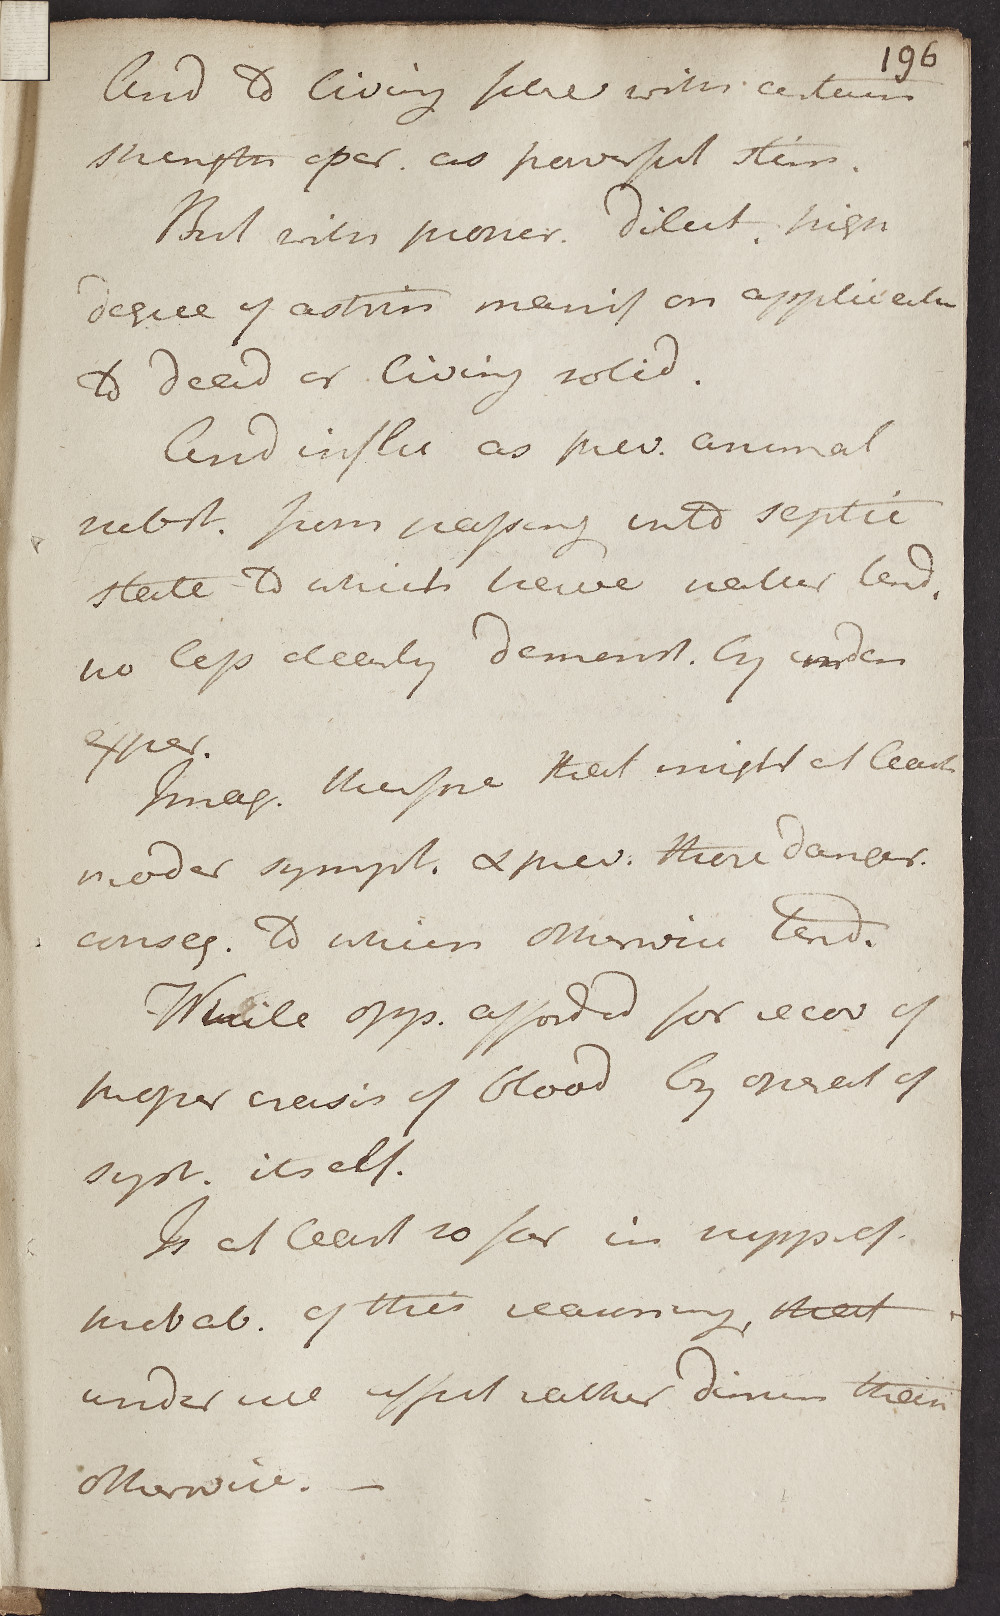 196
And to living fibre with certain
strength oper. as powerful stim.
But with proper. dilut. high
degree of astrin manif on applicatn
to dead or living solid.
And influ as prev. animal
subst. from passing into septic
state to which have natur tend.
no less clearly demonst. by
exper.
Imag. therefore that might at least
moder sympt. & prev. those danger.
conseq. to which otherwise tend.
While opp. afforded for recov of
proper crasis of blood by operat of
syst. itself.
Is at least so far in supp of
probab. of this reasoning, that
under use effect rather dimin than
otherwise. —